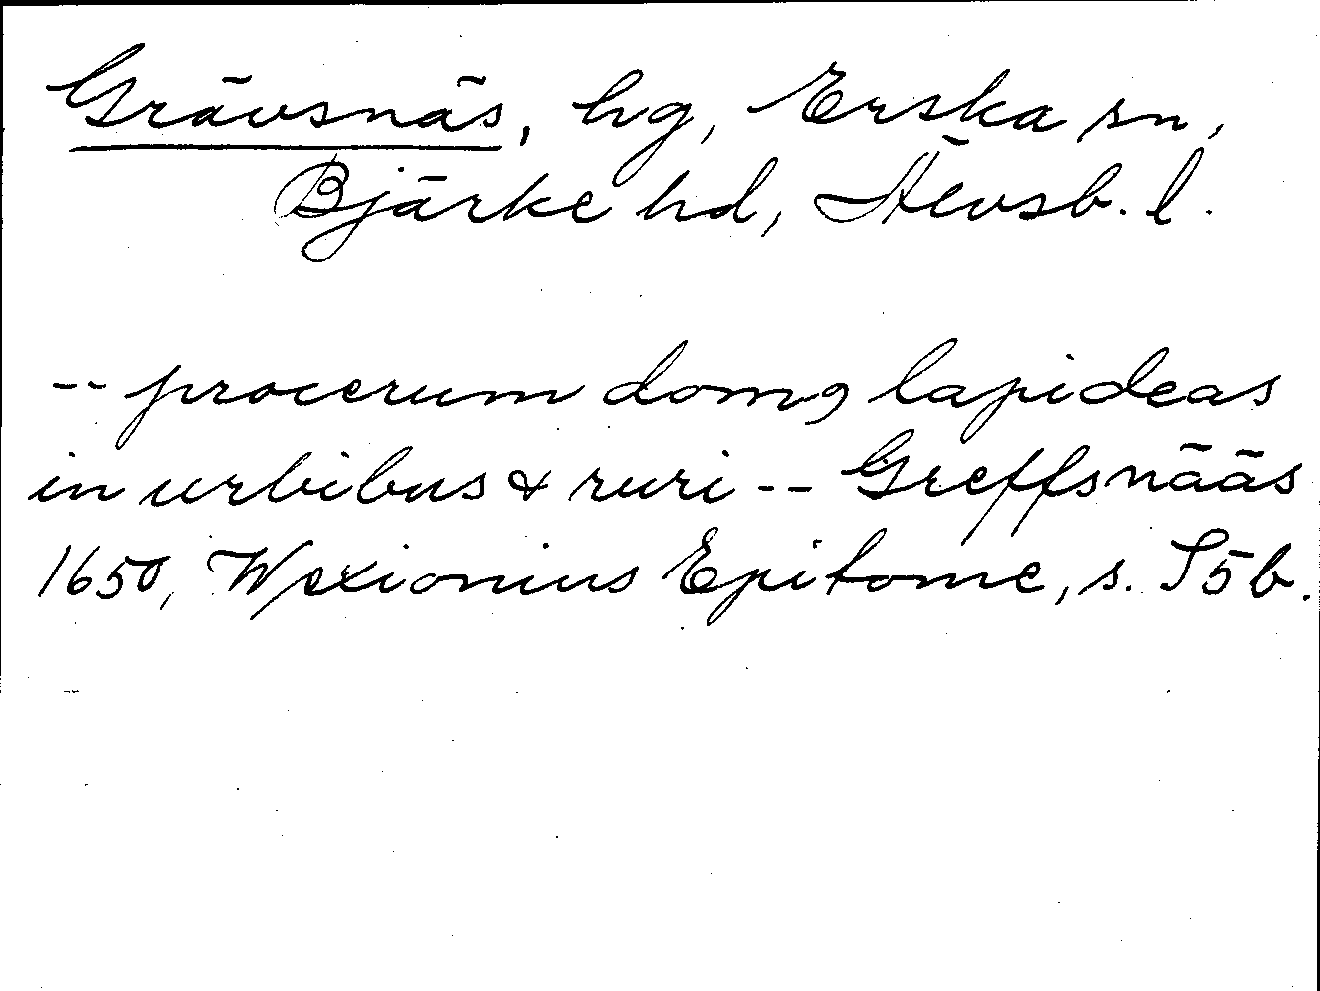 Grävsnäs, hg, Erska sn,
Bjärke hd, Älvsb. l.
-- procerum domꝯ lapideas
in urbibus & ruri -- Greffsnääs
1650, Wexionius Epitome, s. S5b.